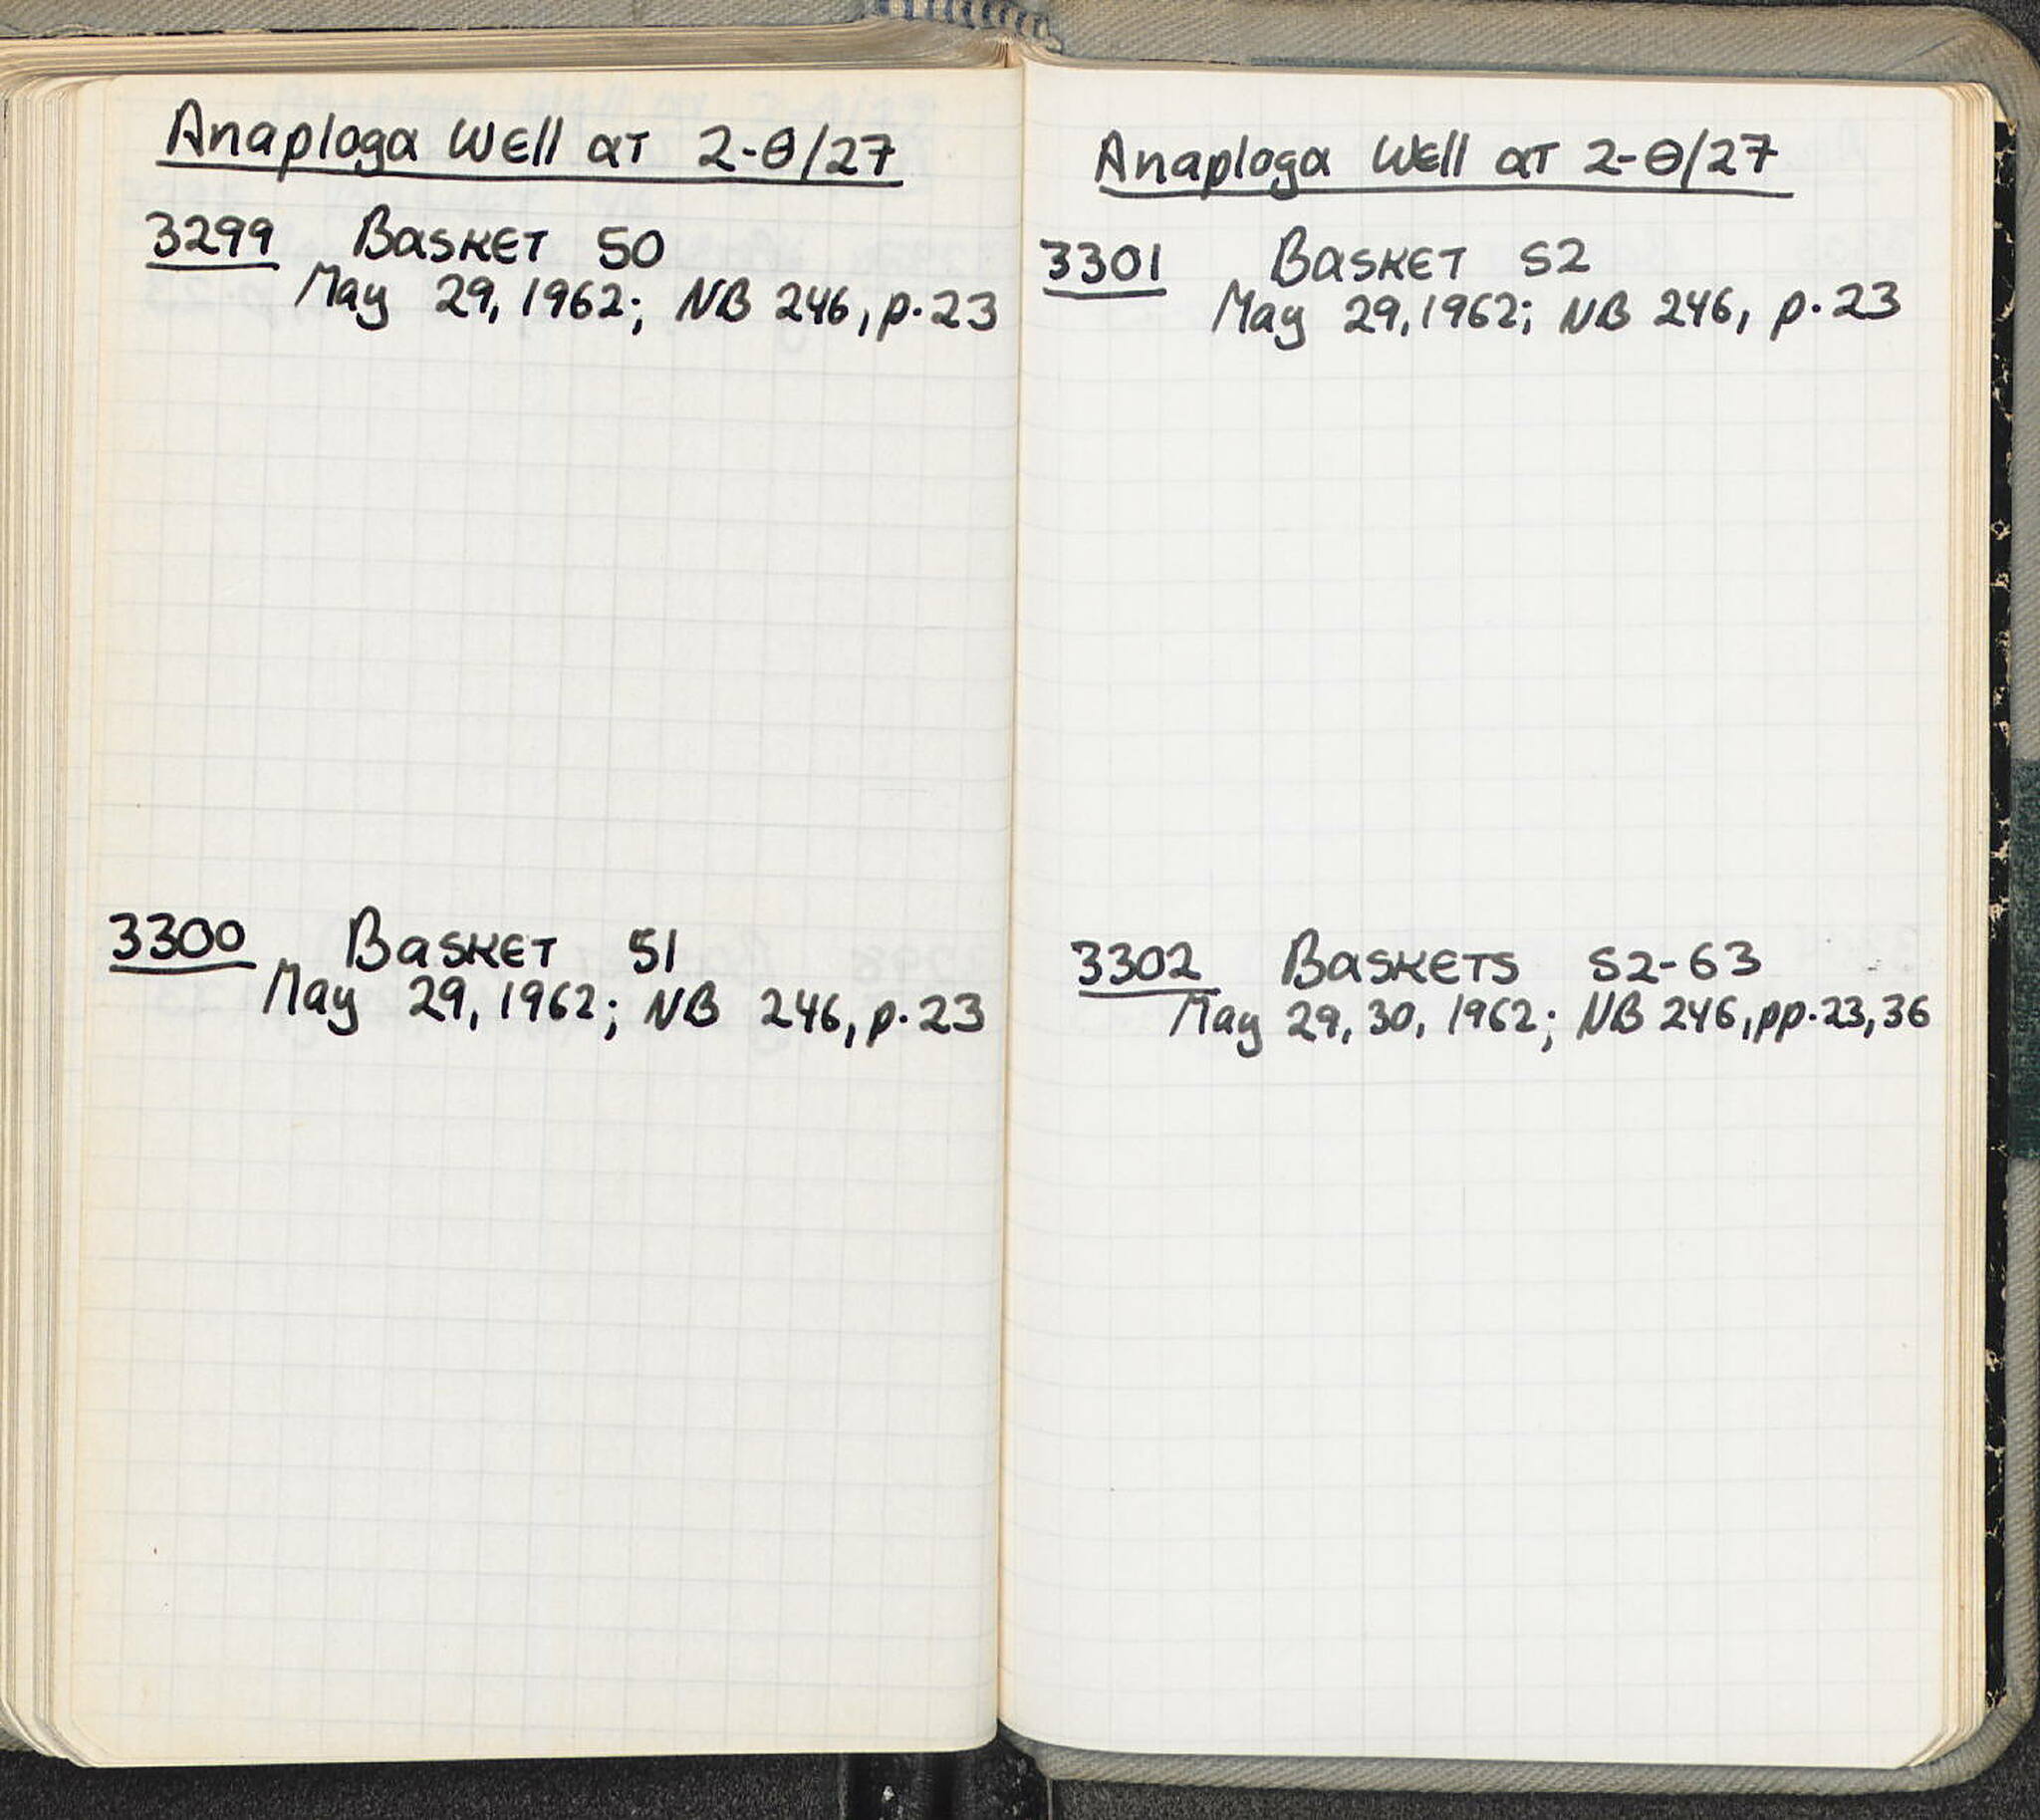 Anaploga Well at 2-Θ/27
3299 Basket 50
May 29, 1962; NB 246, p. 23
3300 Basket 51
May 29, 1962; NB 246, p. 23
Anaploga Well at 2-Θ/27
3301 Basket 52
May 29, 1962; NB 246, p. 23
3302 Baskets 52-63
May 29, 30, 1962; NB 246, pp. 23, 36